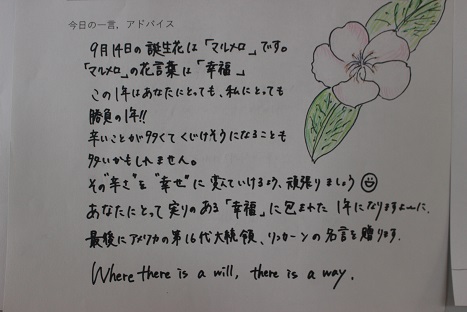 今日の一言、アドバイス
9月14日の誕生花は「マルメロ」です。
「マルメロ」の花言葉は「幸福」
この1年はあなたにとっても、私にとっても
勝負の1年!!
辛いことが多くてくじけそうになることも
多いかもしれません。
その"辛さ"を"幸せ"に変えていけるよう、頑張りましょう☺
あなたにとって実りのある「幸福」に包まれた1年になりますように。
最後にアメリカの第16代大統領、リンカーンの名言を贈ります。
Where there is a will, there is a way.